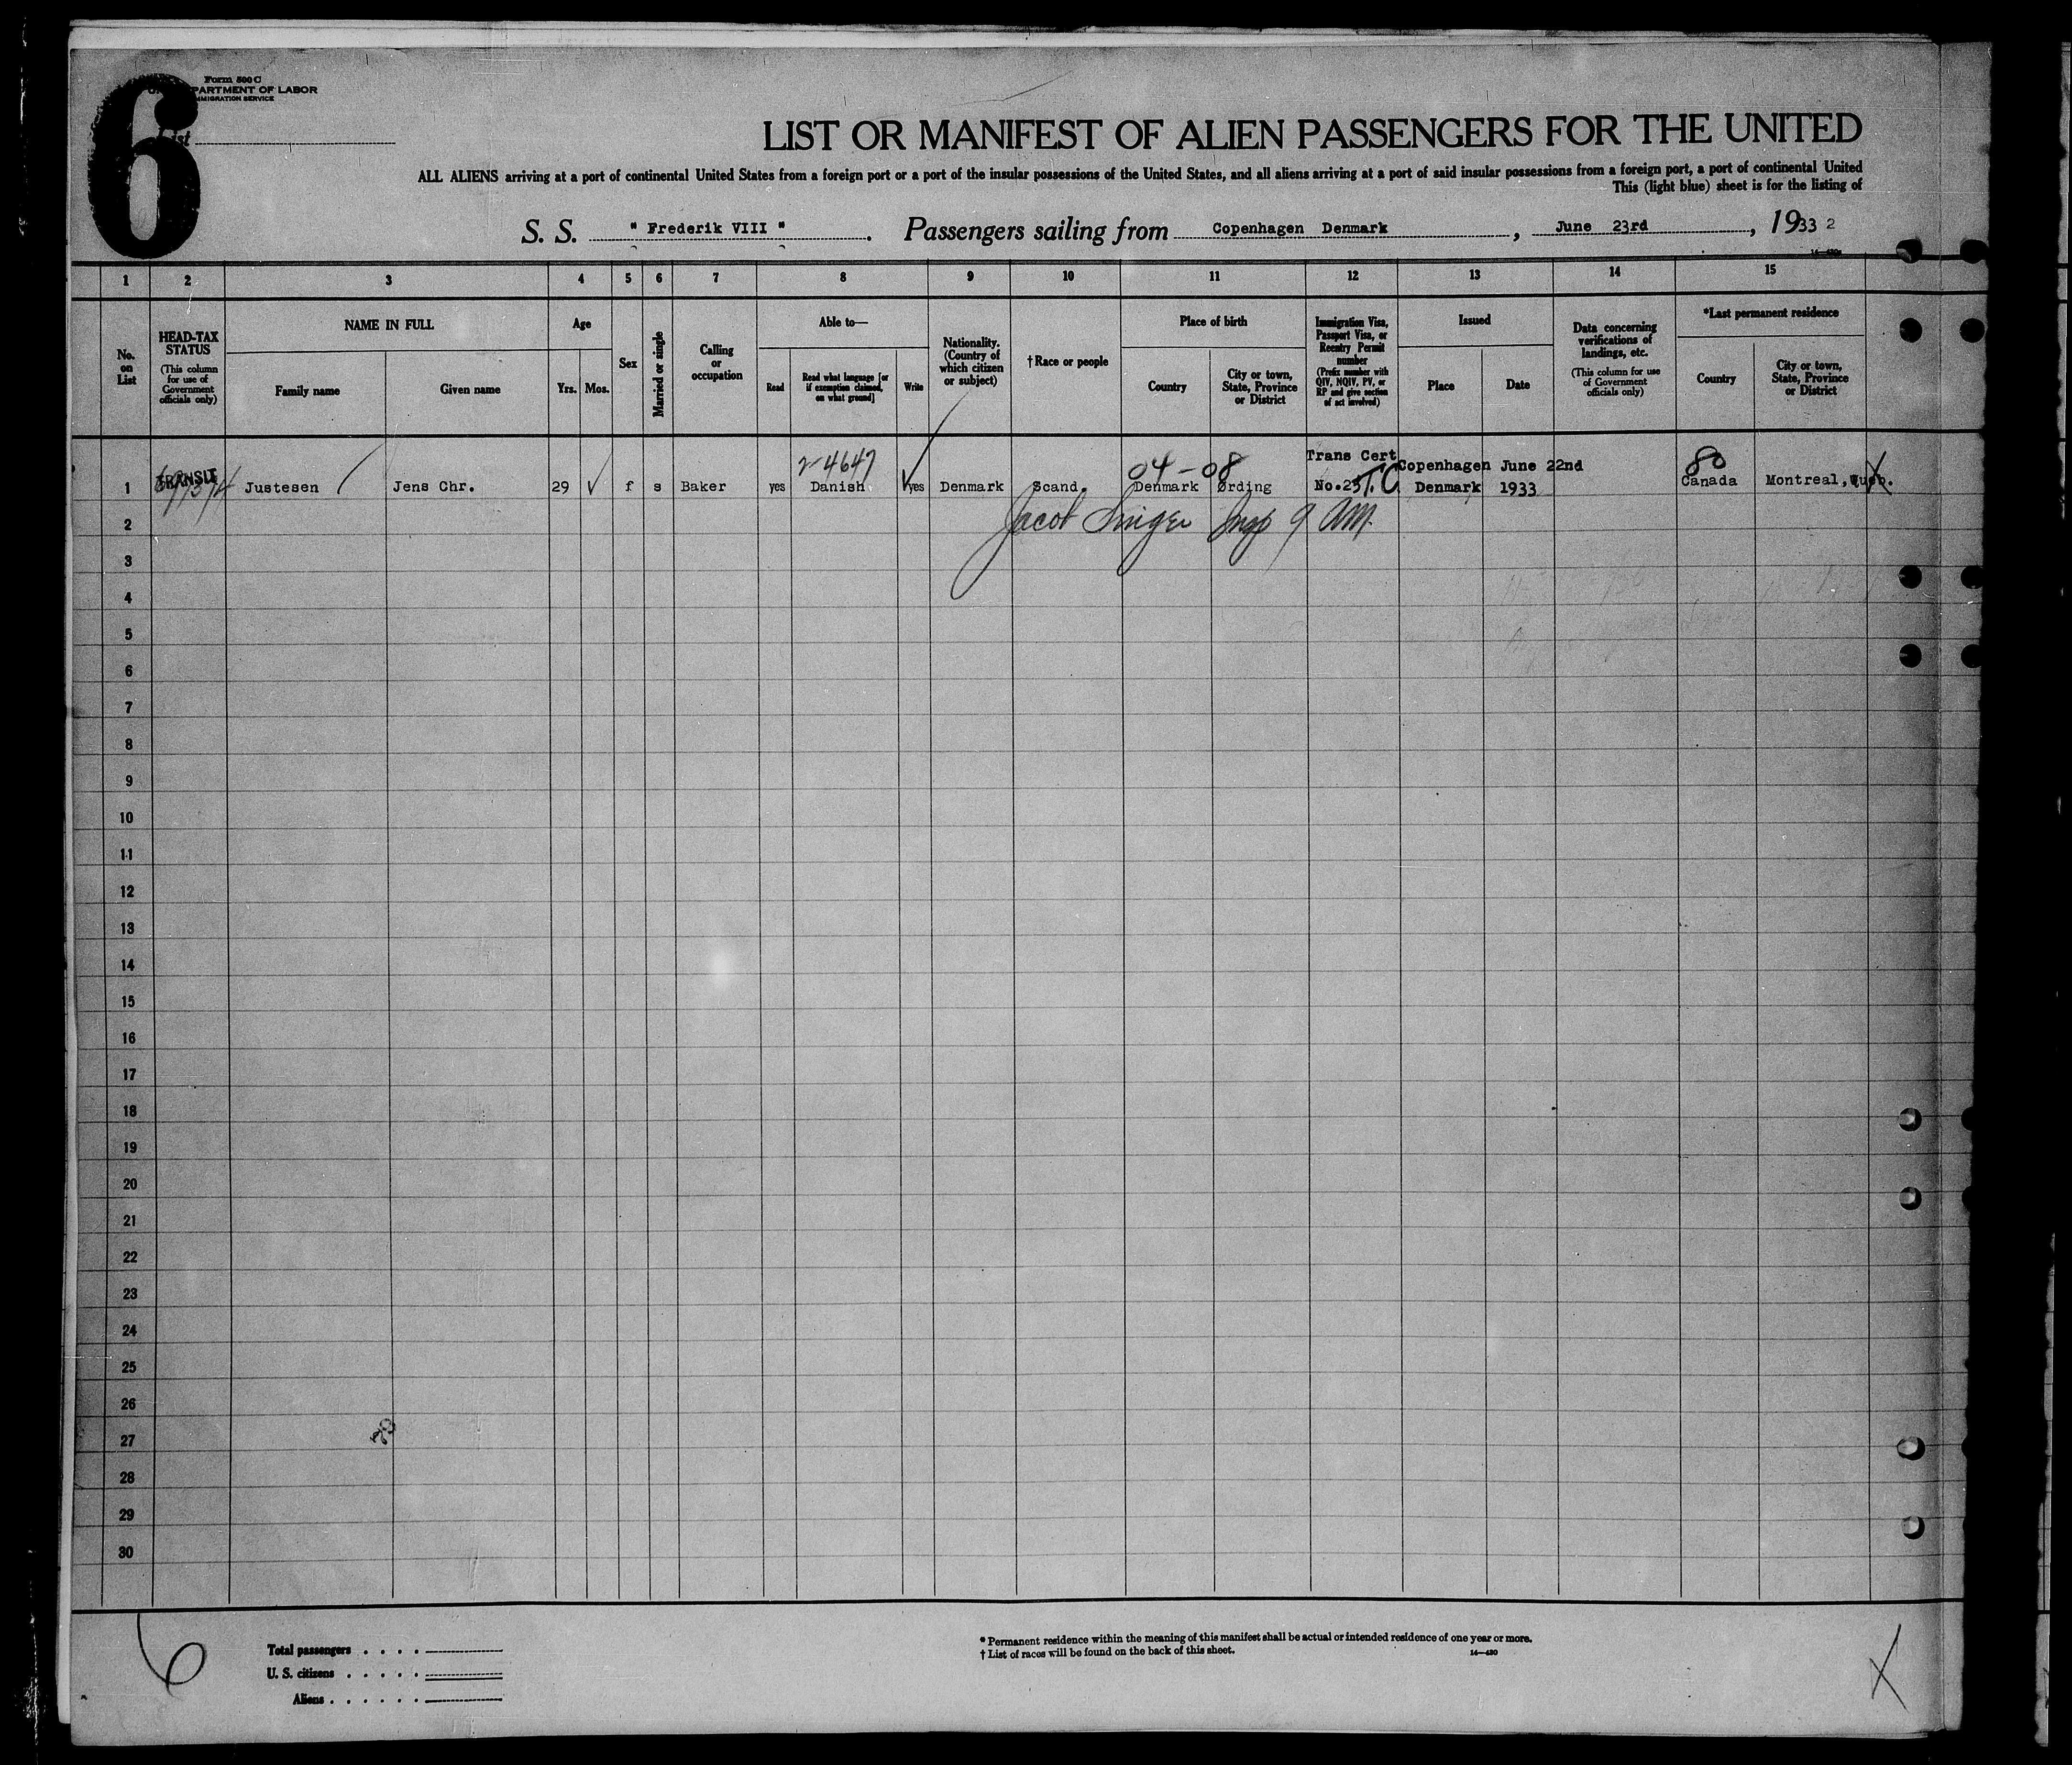 6
Form 500 C
PARTMENT OF LABOR
MMIGRATION SERVICE
List
LIST OR MANIFEST OF ALIEN PASSENGERS FOR THE UNITED
ALL ALIENS arriving at a port of continental United States from a foreign port or a port of the insular possessions of the United States, and all aliens arriving at a port of said insular possessions from a foreign port, a port of continental United
This (light blue) sheet is for the listing of
S. S. " Frederik VIII ". Passengers sailing from Copenhagen Denmark, June 23rd, 1933 2
14—430
1 2 3 4 5 6 7 8 9 10 11 12 13 14 15
No. on List
HEAD-TAX STATUS (This column for use of Government officials only)
NAME IN FULL
Family name
Given name
Age
Yrs. Mos.
Sex
Married or single
Calling or occupation
Able to—
Read
Read what language [or if exemption claimed, on what ground]
Write
Nationality. (Country of which citizen or subject)
†Race or people
Place of birth
Country
City or town, State, Province or District
Immigration Visa, Passport Visa, or Reentry Permit number (Prefix number with QIV, NQIV, PV, or RP and give section of act involved)
Issued
Place
Date
Data concerning verifications of landings, etc. (This column for use of Government officials only)
*Last permanent residence
Country
City or town, State, Province or District
4647 04-08 Trans Cert Copenhagen June 22nd 80
1 TRANSIT Justesen Jens Chr. 29 f s Baker yes Danish yes Denmark Scand. Denmark Ørding No.25 T.C. Denmark 1933 Canada Montreal, Queb.
2 Jacob Singer Insp 9 AM.
3
4
5
6
7
8
9
10
11
12
13
14
15
16
17
18
19
20
21
22
23
24
25
26
27
28
29
30
6
Total passengers . . . .
U. S. citizens . . . . .
Aliens . . . . . .
* Permanent residence within the meaning of this manifest shall be actual or intended residence of one year or more.
† List of races will be found on the back of this sheet.
14—430
X